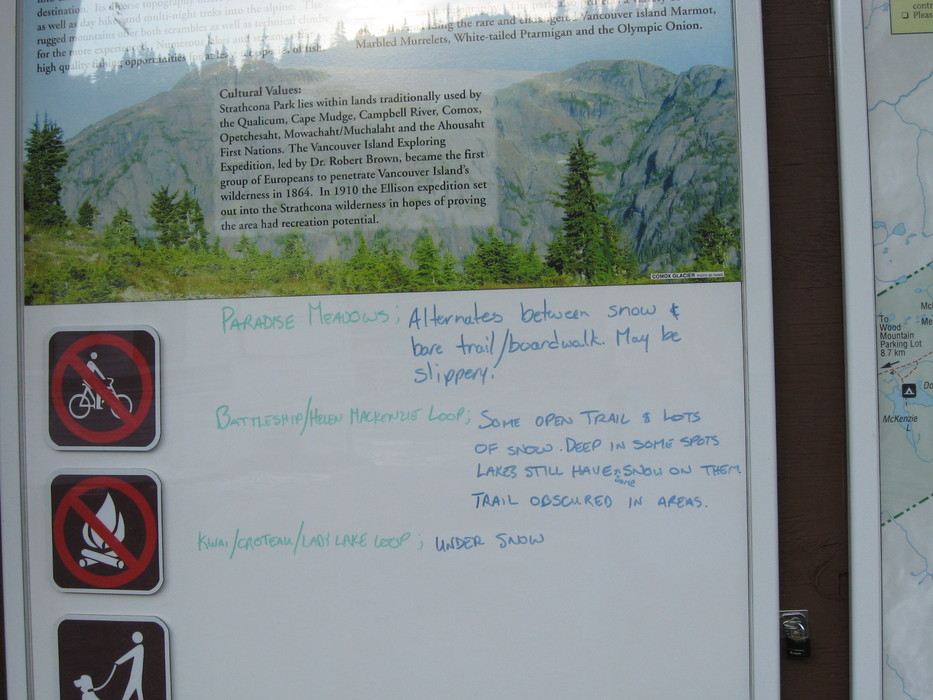 destination. Its diverse topography
as well as day hikes and multi-night treks into the alpine. The
rugged mountains offer both scrambles as well as technical climbs
for the more experienced. Numerous
high quality fishing opportunities for at least species of fish.
including the rare and endangered Vancouver Island Marmot,
Marbled Murrelets, White-tailed Ptarmigan and the Olympic Onion.
Cultural Values:
Strathcona Park lies within lands traditionally used by
the Qualicum, Cape Mudge, Campbell River, Comox,
Opetchesaht, Mowachaht/Muchalaht and the Ahousaht
First Nations. The Vancouver Island Exploring
Expedition, led by Dr. Robert Brown, became the first
group of Europeans to penetrate Vancouver Island's
wilderness in 1864. In 1910 the Ellison expedition set
out into the Strathcona wilderness in hopes of proving
the area had recreation potential.
COMOX GLACIER
PARADISE MEADOWS; Alternates between snow &
bare trail/boardwalk. May be
slippery.
BATTLESHIP/HELEN MACKENZIE LOOP; SOME OPEN TRAIL & LOTS
OF SNOW. DEEP IN SOME SPOTS
LAKES STILL HAVE some SNOW ON THEM
TRAIL OBSCURED IN AREAS.
KWAI/CROTEAU/LADY LAKE LOOP; UNDER SNOW
To
Wood
Mountain
Parking Lot
8.7 km
McKenzie
L